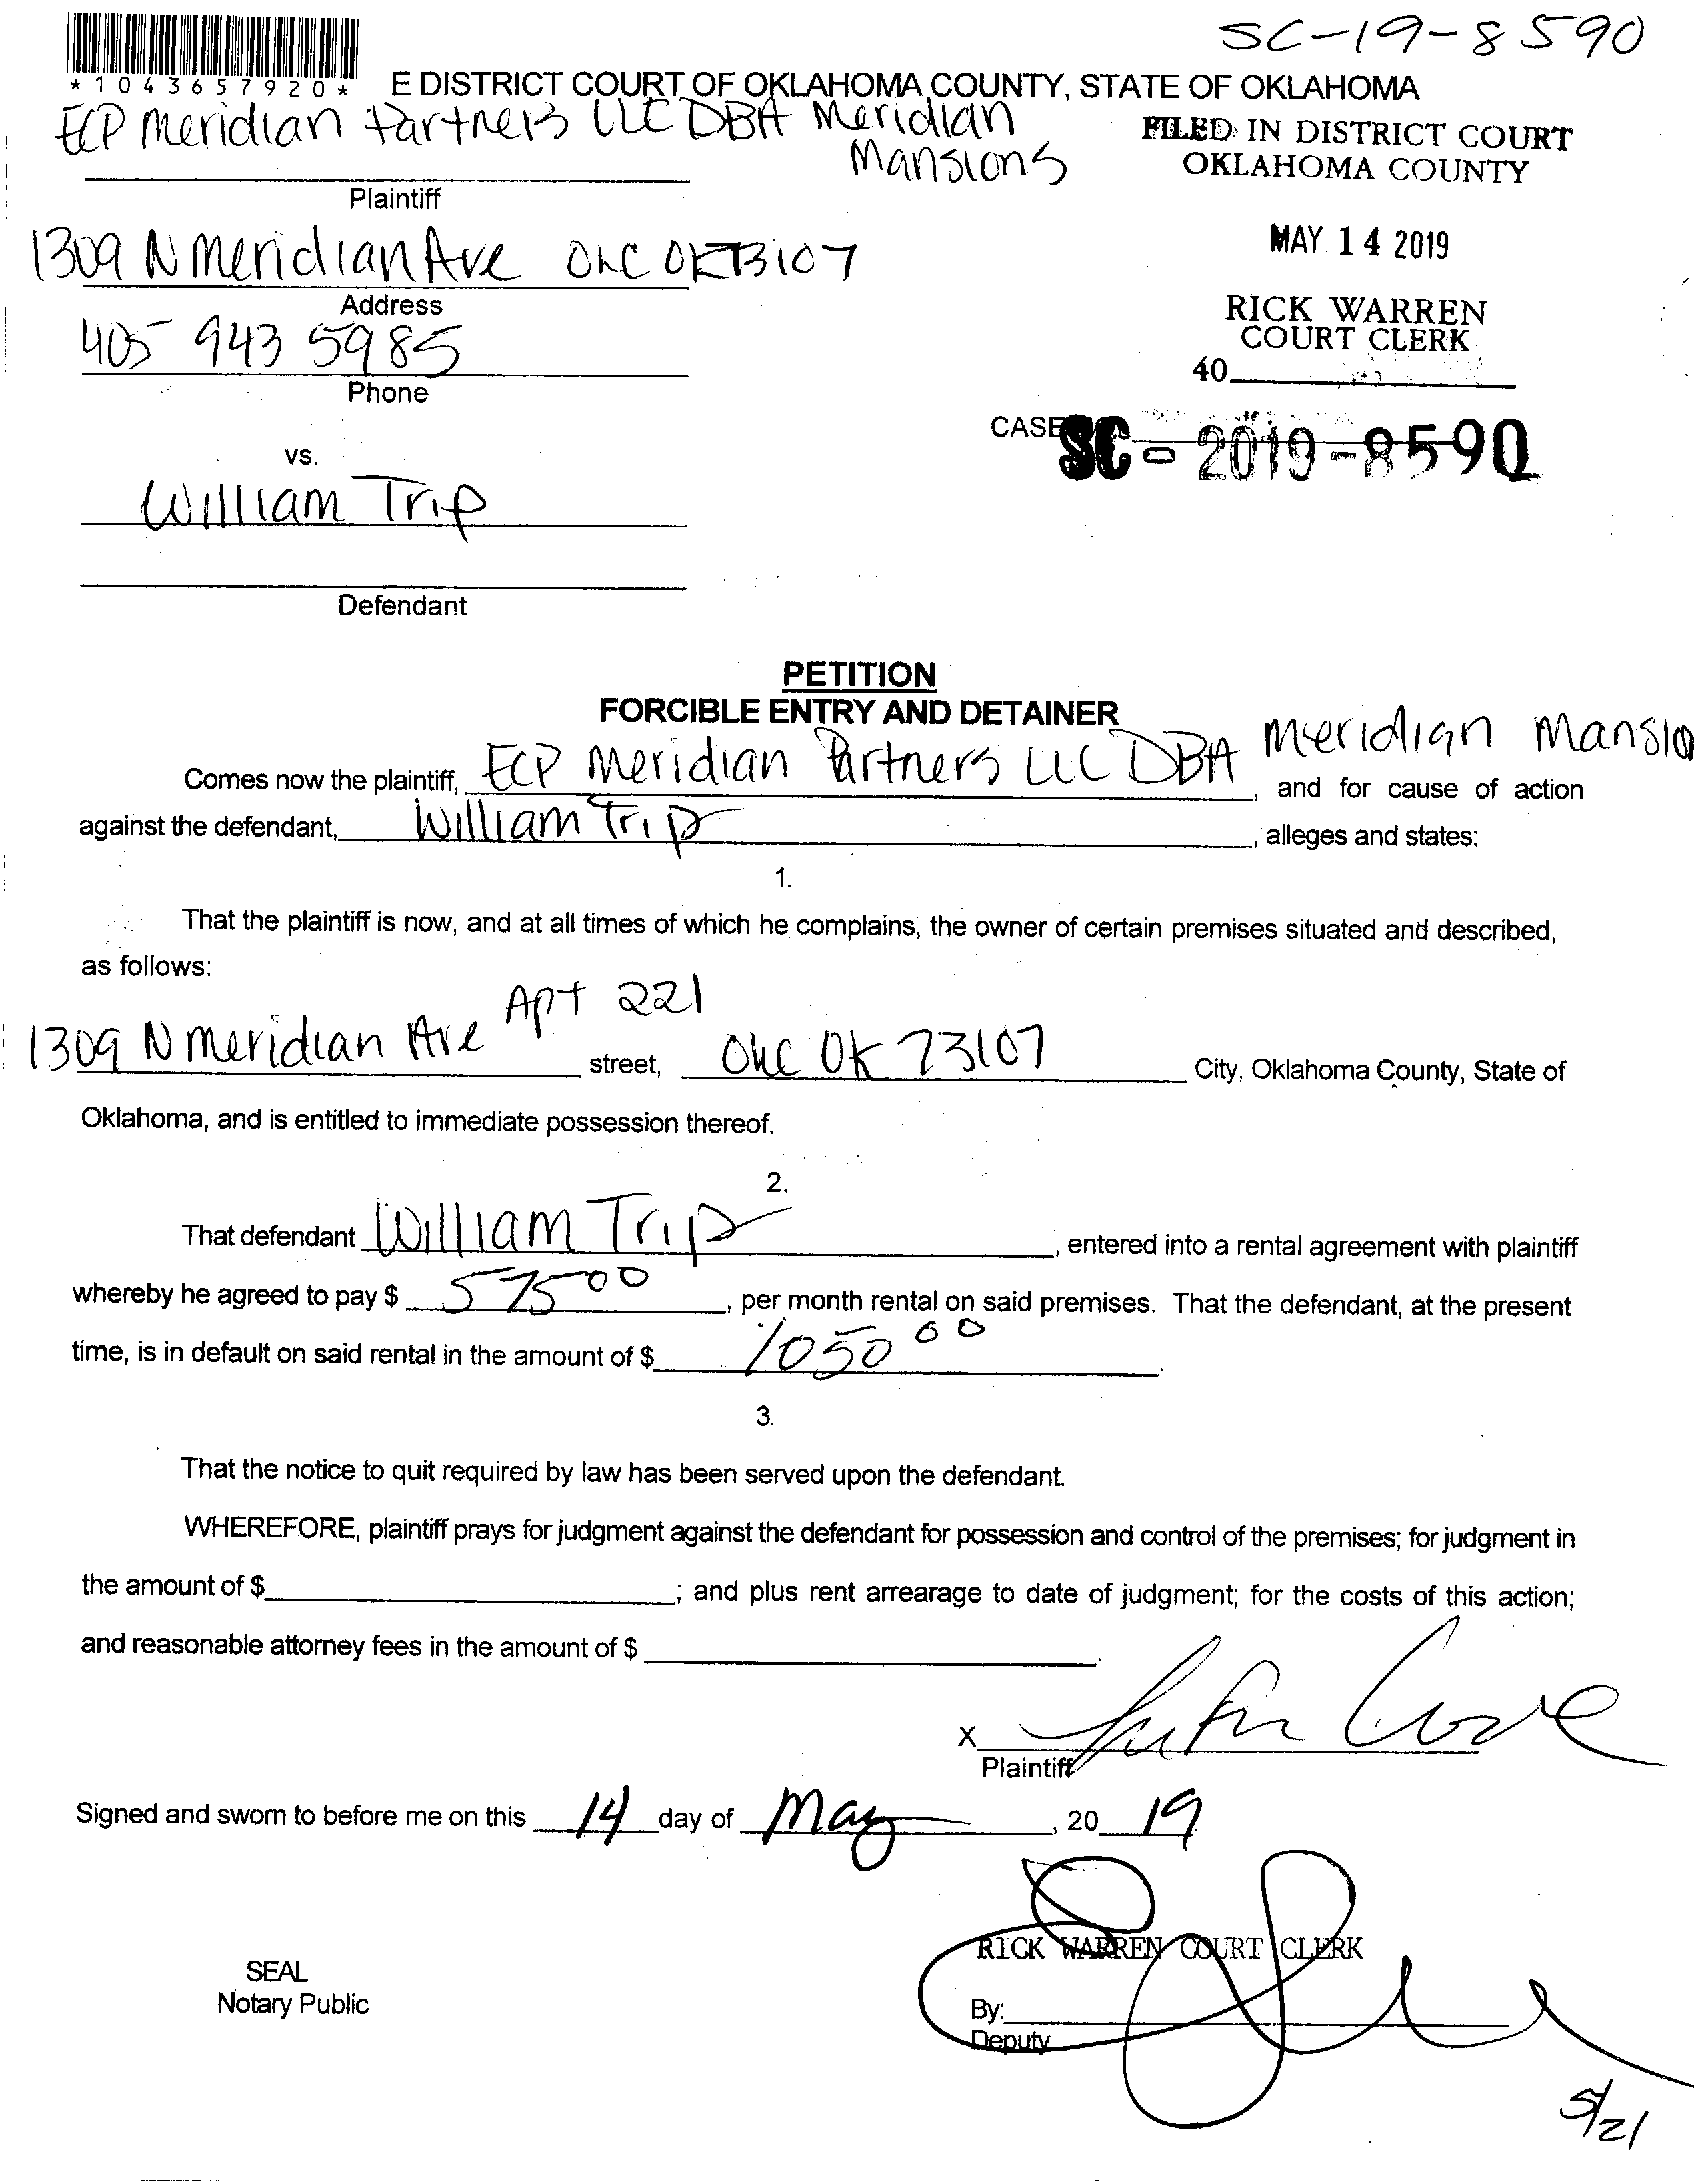 SC-19-8590
*1043657920*
E DISTRICT COURT OF OKLAHOMA COUNTY, STATE OF OKLAHOMA
ECP Meridian Partners LLC DBA Meridian
Mansions
FILED IN DISTRICT COURT
OKLAHOMA COUNTY
Plaintiff
MAY 14 2019
1309 N Meridian Ave OKC OK 73107
Address
RICK WARREN
COURT CLERK
405 943 5985
40
Phone
CASE SC-2019-8590
vs.
William Trip
Defendant
PETITION
FORCIBLE ENTRY AND DETAINER
Comes now the plaintiff, ECP Meridian Partners LLC DBA Meridian Mansio, and for cause of action
against the defendant, William Trip, alleges and states:
1.
That the plaintiff is now, and at all times of which he complains, the owner of certain premises situated and described,
as follows:
Apt 221
1309 N Meridian Ave street, OKC OK 73107 City, Oklahoma County, State of
Oklahoma, and is entitled to immediate possession thereof.
2.
That defendant William Trip, entered into a rental agreement with plaintiff
whereby he agreed to pay $ 575 00, per month rental on said premises. That the defendant, at the present
time, is in default on said rental in the amount of $ 1050 00.
3.
That the notice to quit required by law has been served upon the defendant.
WHEREFORE, plaintiff prays for judgment against the defendant for possession and control of the premises; for judgment in
the amount of $; and plus rent arrearage to date of judgment; for the costs of this action;
and reasonable attorney fees in the amount of $.
X
Plaintiff
Signed and sworn to before me on this 14 day of May, 20 19
RICK WARREN COURT CLERK
SEAL
Notary Public
By:
Deputy
5/21